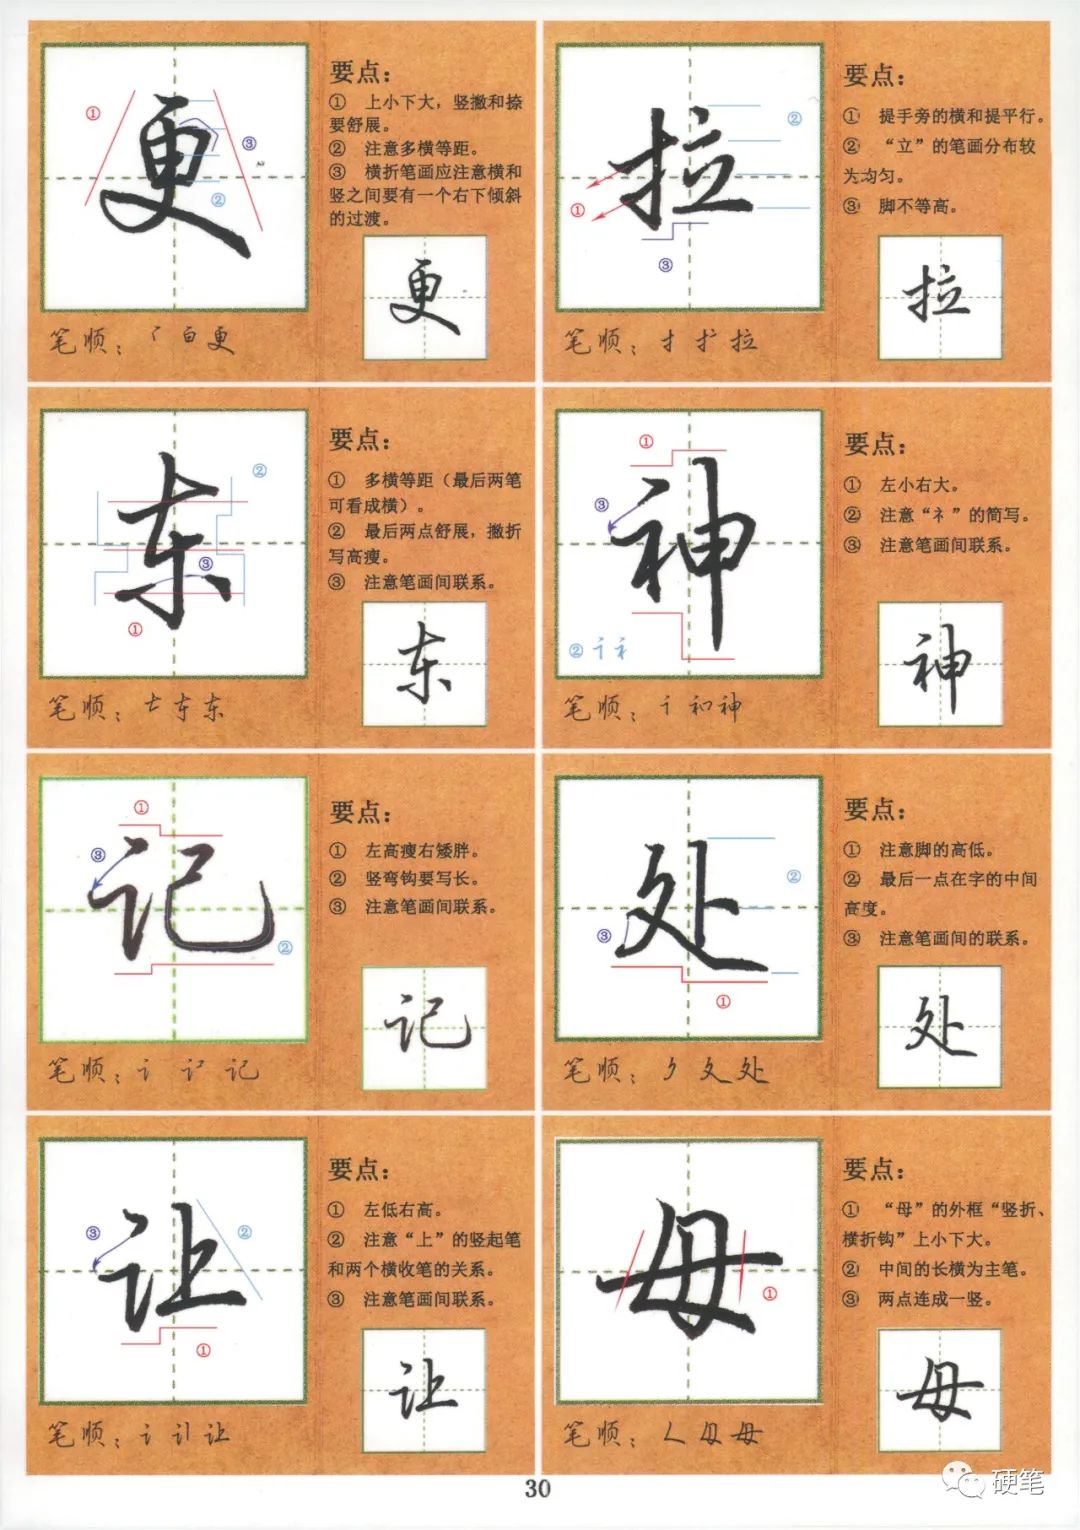 更
①
③
②
要点：
① 上小下大，竖撇和捺
要舒展。
② 注意多横等距。
③ 横折笔画应注意横和
竖之间要有一个右下倾斜
的过渡。
更
笔顺：亩更
拉
②
①
③
要点：
① 提手旁的横和提平行。
② “立”的笔画分布较
为均匀。
③ 脚不等高。
拉
笔顺：扌扩拉
东
②
③
①
要点：
① 多横等距（最后两笔
可看成横）。
② 最后两点舒展，撇折
写高瘦。
③ 注意笔画间联系。
东
笔顺：东
神
①
③
② 讠礻
要点：
① 左小右大。
② 注意“礻”的简写。
③ 注意笔画间联系。
神
笔顺：讠和神
记
①
③
②
要点：
① 左高瘦右矮胖。
② 竖弯钩要写长。
③ 注意笔画间联系。
记
笔顺：讠记
处
②
③
①
要点：
① 注意脚的高低。
② 最后一点在字的中间
高度。
③ 注意笔画间的联系。
处
笔顺：夂处
让
③
②
①
要点：
① 左低右高。
② 注意“上”的竖起笔
和两个横收笔的关系。
③ 注意笔画间联系。
让
笔顺：讠让
母
①
要点：
① “母”的外框“竖折、
横折钩”上小下大。
② 中间的长横为主笔。
③ 两点连成一竖。
母
笔顺：毋母
30
硬笔